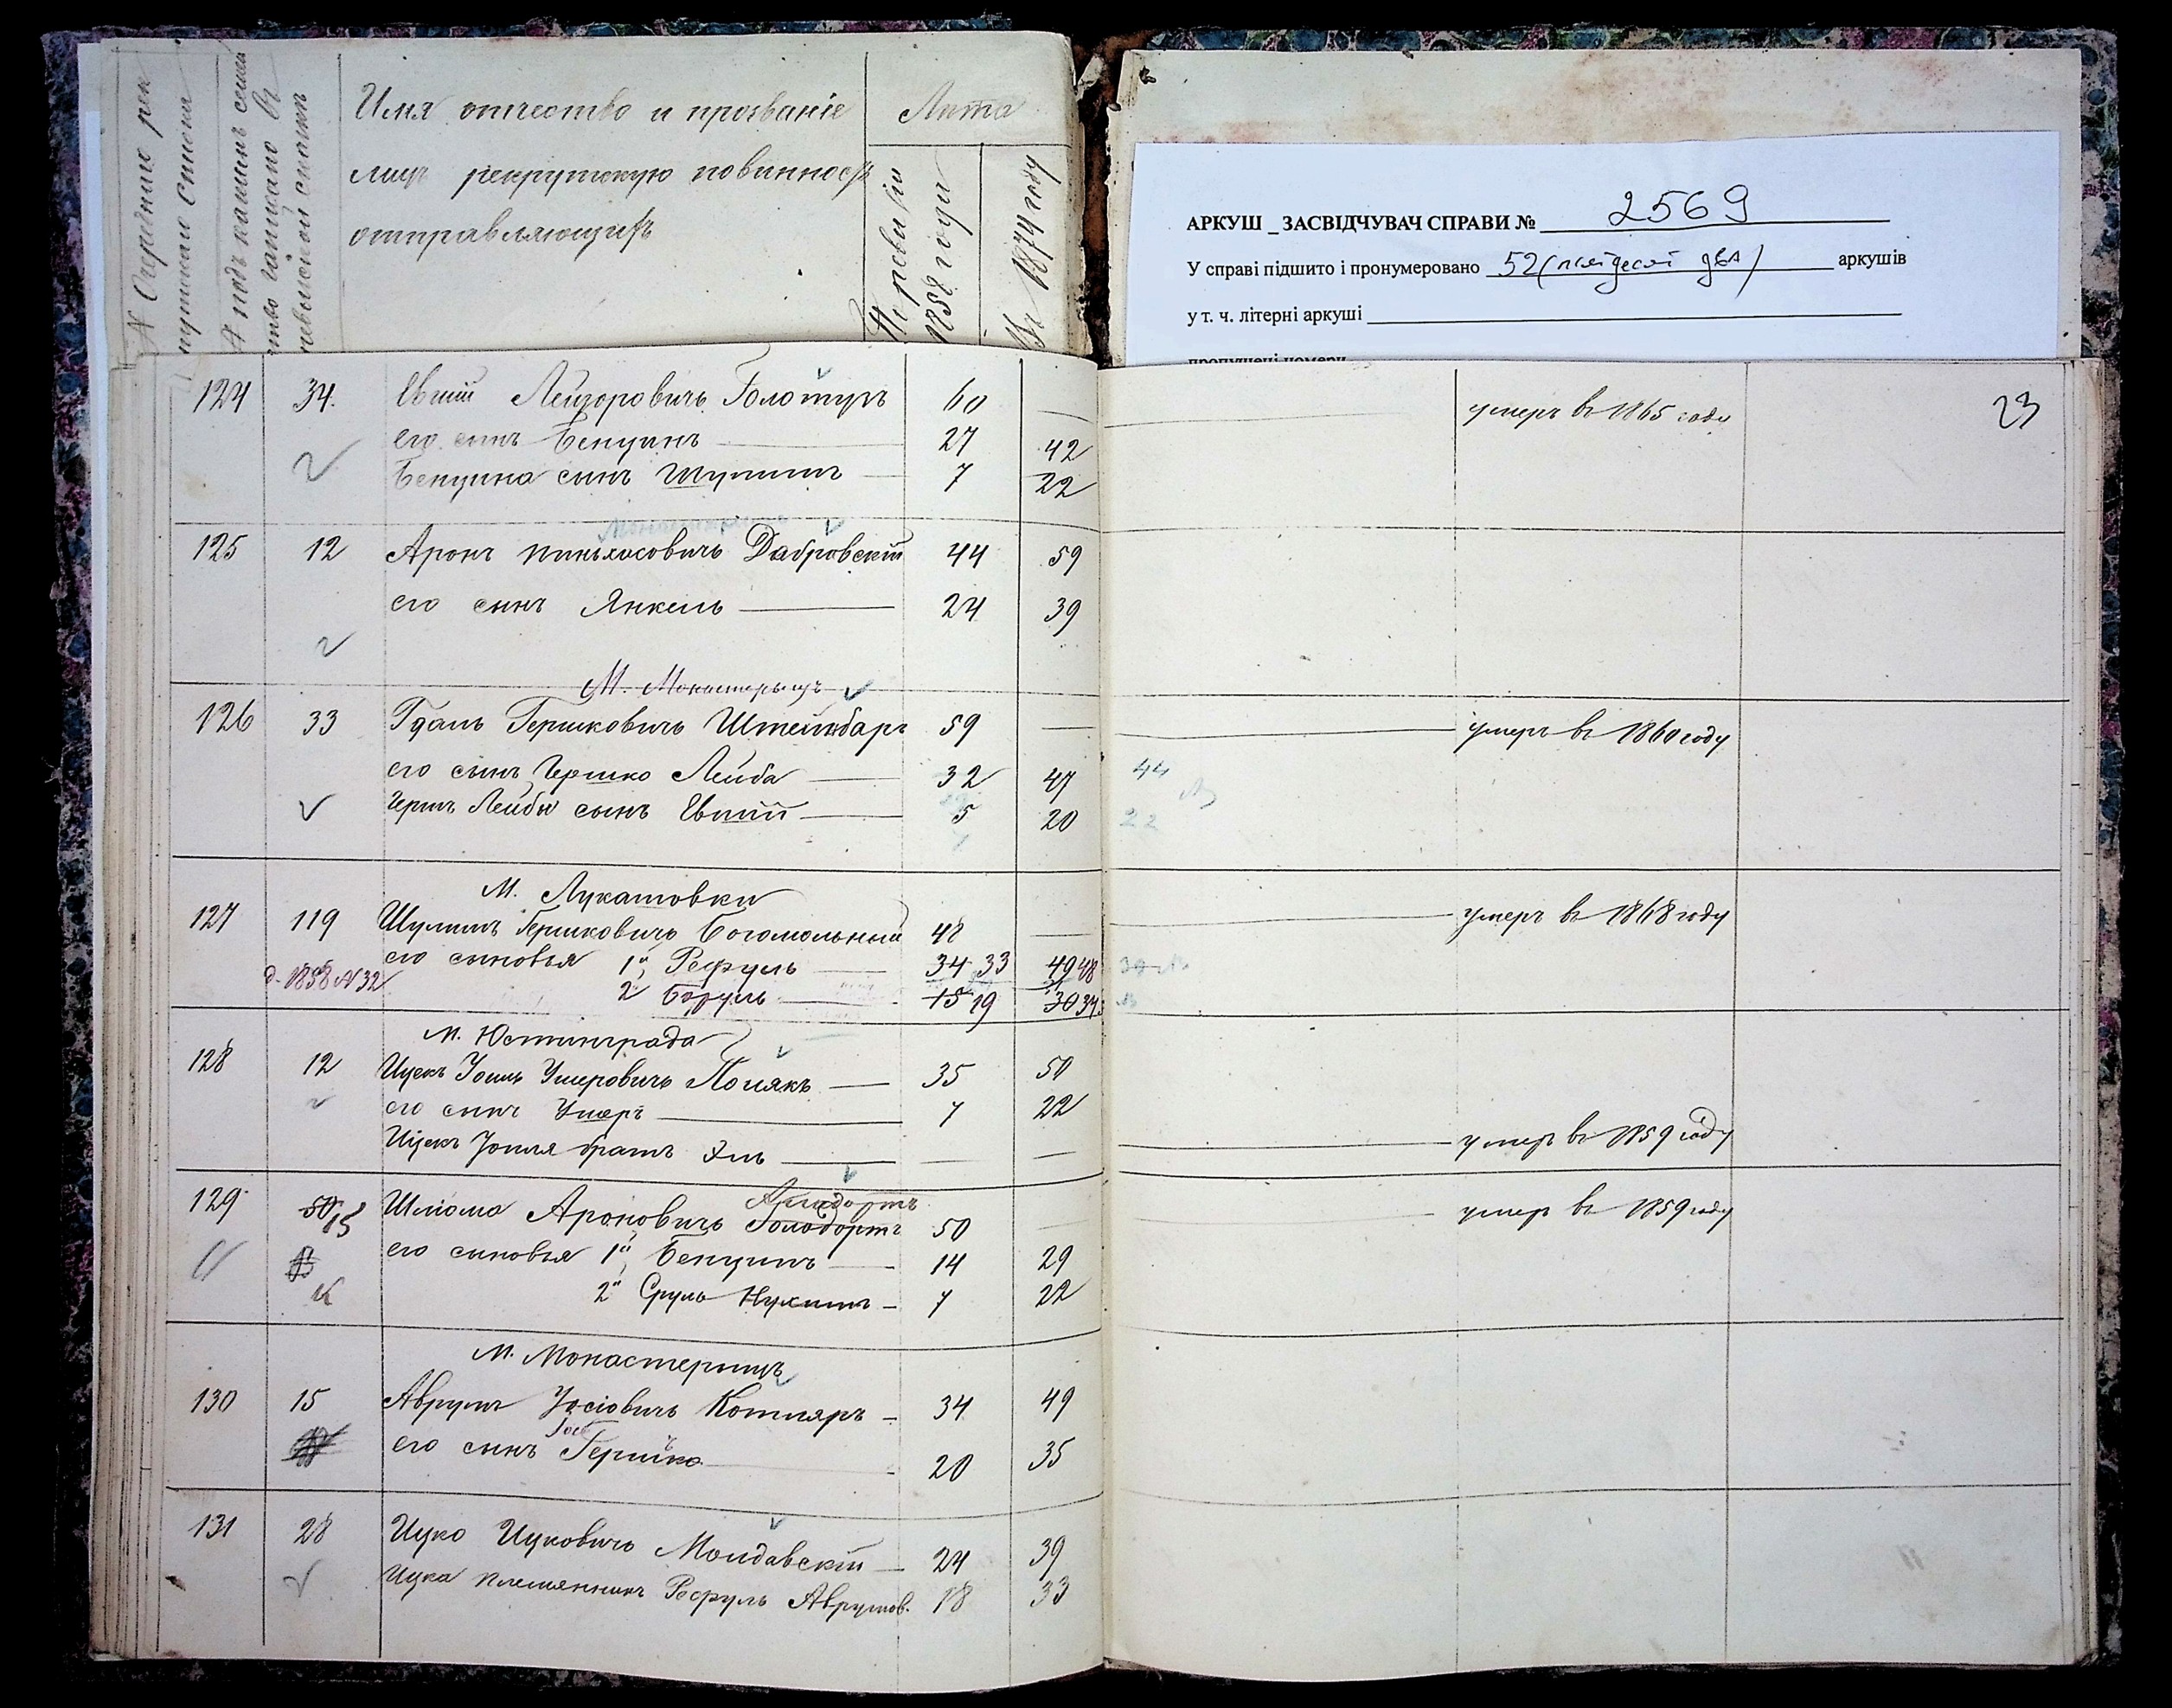 № Очередные рек
рутскаго списка
№ подъ какимъ семей
ство записано въ
ревизской сказкѣ
Имя отчество и прозваніе
лицъ рекрутскую повинность
отправляющихъ
Лѣта
По ревизіи
1858 года
Въ 1874 году
АРКУШ _ ЗАСВІДЧУВАЧ СПРАВИ № 2569
У справі підшито і пронумеровано 52 (пятдесят два) аркушів
у т. ч. літерні аркуші
пропущені номери
23
124 34. Евшій Лейзоровичъ Болотуръ 60 — умеръ въ 1865 году
его сынъ Бенціанъ 27 42
Бенціана сынъ Шулимъ 7 22
125 12 Аронъ Пиньхасовичъ Дабровскій 44 59
его сынъ Янкель 24 39
М. Монастырищъ
126 33 Гдаль Гершковичъ Штейнбаргъ 59 — умеръ въ 1860 году
его сынъ Гершко Лейба 32 47 44
Гершъ Лейбы сынъ Евшій 5 20 22
М. Лукашовки
127 119 Шулимъ Гершковичъ Богомольный 48 — умеръ въ 1868 году
его сыновья 1й Рефуль 34 33 49 48
д. 1858 № 32 2 Борухъ 15 19 30 34
М. Юстинграда
128 12 Ицекъ Іоиль Умеровичъ Полякъ 35 50
его сынъ Умеръ 7 22
Ицекъ Іоиля братъ Эль — — умеръ въ 1859 году
129 50 15 Шліома Ароновичъ Голодортъ 50 — умеръ въ 1859 году
его сыновья 1й Бенціанъ 14 29
2й Сруль Нухимъ 7 22
М. Монастерищъ
130 15 Аврумъ Іосіовичъ Котляръ 34 49
его сынъ Гершко 20 35
131 28 Ицко Ицковичъ Молдавскій 24 39
Ицка племянникъ Рефуль Аврумов. 18 33